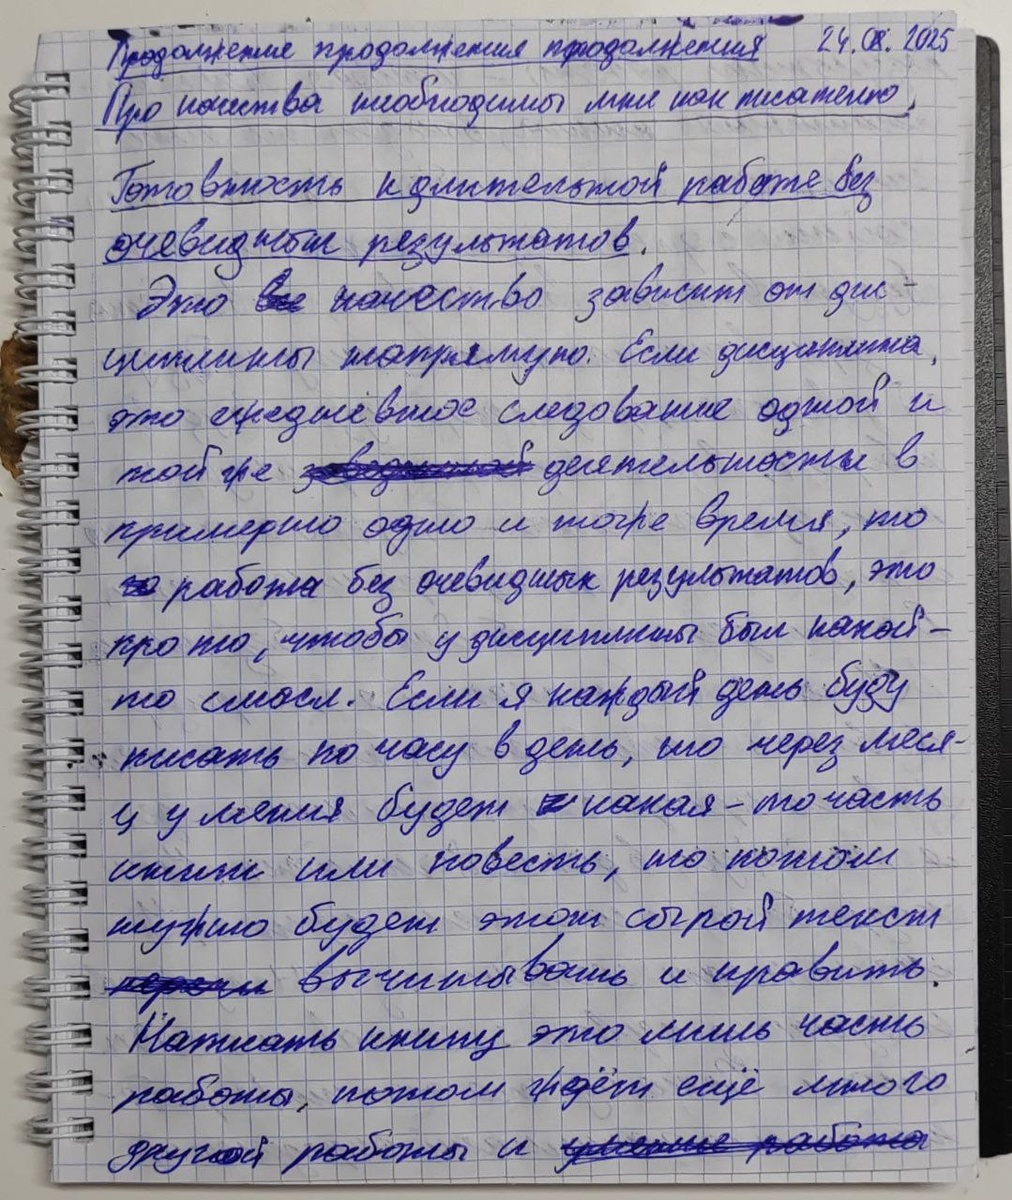 Продолжение продолжения продолжения 24.08.2025
Про качества необходимы мне как писателю.
Готовность к длительной работе без
очевидных результатов.
Это качество зависит от дис-
циплины напрямую. Если дисциплина,
это ежедневное следование одной и
той же деятельности в
примерно одно и тоже время, то
работа без очевидных результатов, это
про то, чтобы у дисциплины был какой-
то смысл. Если я каждый день буду
писать по часу в день, то через меся-
ц у меня будет какая-то часть
книги или повесть, то потом
нужно будет этот сырой текст
вычитывать и править.
Написать книгу это лишь часть
работы, потом ждёт ещё много
другой работы и